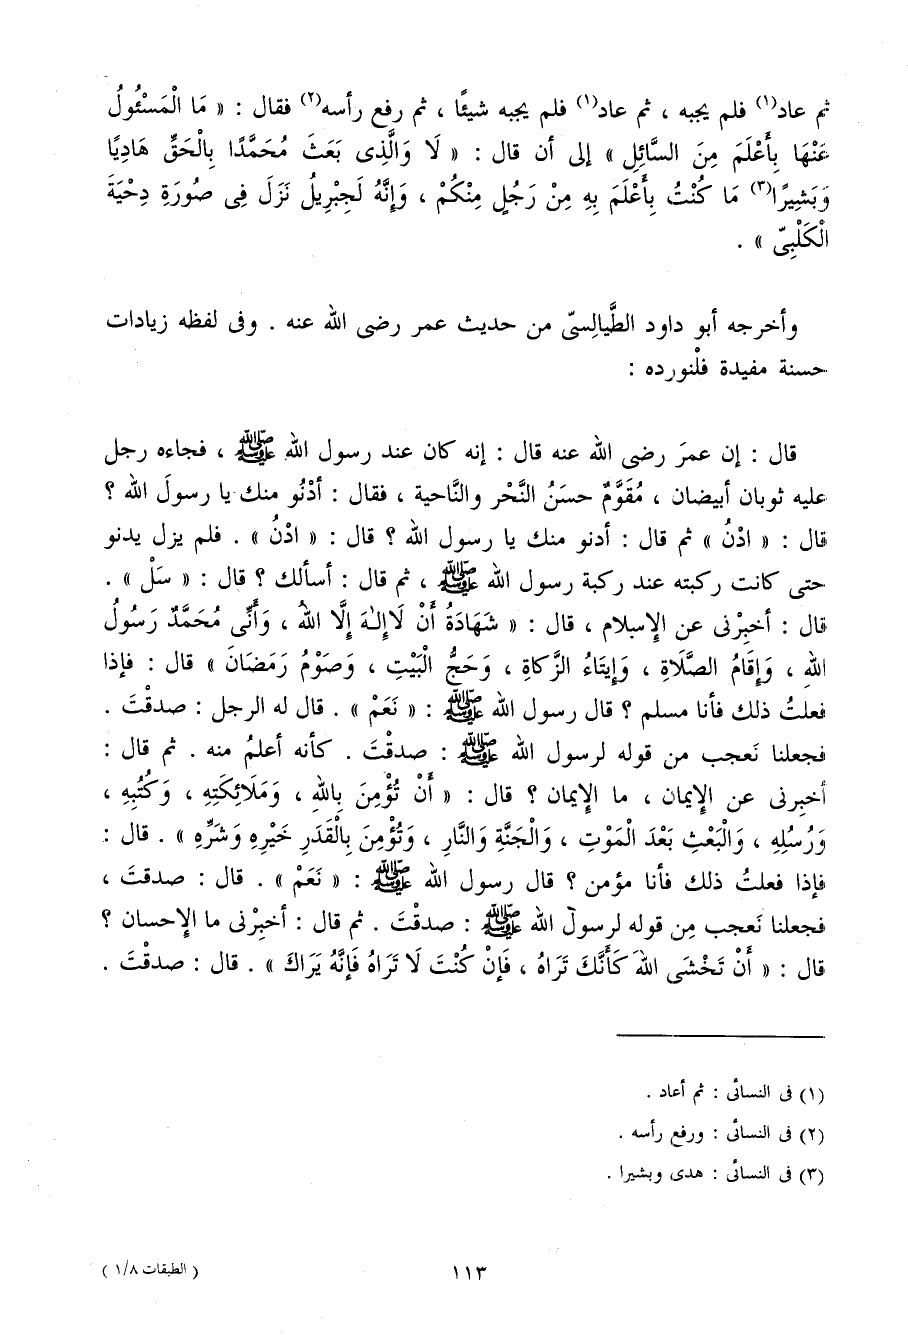 ثم عاد(١) فلم يجبه ، ثم عاد(١) فلم يجبه شيئًا ، ثم رفع رأسه(٢) فقال : « مَا الْمَسْئُولُ
عَنْهَا بِأَعْلَمَ مِنَ السَّائِلِ » إلى أن قال : « لَا وَالَّذِى بَعَثَ مُحَمَّدًا بِالْحَقِّ هَادِيًا
وَبَشِيرًا(٣) مَا كُنْتُ بِأَعْلَمَ بِهِ مِنْ رَجُلٍ مِنْكُمْ ، وَإِنَّهُ لَجِبْرِيلُ نَزَلَ فِى صُورَةِ دِحْيَةَ
الْكَلْبِىّ » .
وأخرجه أبو داود الطَّيالِسىّ من حديث عمر رضى الله عنه . وفى لفظه زيادات
حسنة مفيدة فلْنورده :
قال : إن عمرَ رضى الله عنه قال : إنه كان عند رسول الله ﷺ ، فجاءه رجل
عليه ثوبان أبيضان ، مُقَوَّمٌ حسَنُ النَّحْر والنَّاحية ، فقال : أدْنُو منك يا رسولَ الله ؟
قال : « ادْنُ » ثم قال : أدنو منك يا رسول الله ؟ قال : « ادْنُ » . فلم يزل يدنو
حتى كانت ركبته عند ركبة رسول الله ﷺ ، ثم قال : أسألك ؟ قال : « سَلْ » .
قال : أخبِرْنى عن الإسلام ، قال : « شَهَادَةُ أَنْ لَا إِلـٰهَ إِلَّا اللهُ ، وَأَنِّى مُحَمَّدٌ رَسُولُ
اللهِ ، وَإِقَامُ الصَّلَاةِ ، وَإِيتَاءُ الزَّكاةِ ، وَحَجُّ الْبَيْتِ ، وَصَوْمُ رَمَضَانَ » قال : فإذا
فعلتُ ذلك فأنا مسلم ؟ قال رسول الله ﷺ : « نَعَمْ » . قال له الرجل : صدقْتَ .
فجعلنا نَعجب من قوله لرسول الله ﷺ : صدقْتَ . كأنه أعلمُ منه . ثم قال :
أخبِرنى عن الإيمان ، ما الإيمان ؟ قال : « أَنْ تُؤْمِنَ بِاللهِ ، وَمَلَائِكَتِهِ ، وَكُتُبِهِ ،
وَرُسُلِهِ ، وَالْبَعْثِ بَعْدَ الْمَوْتِ ، وَالْجَنَّةِ وَالنَّارِ ، وَتُؤْمِنَ بِالْقَدَرِ خَيْرِهِ وَشَرِّهِ » . قال :
فإذا فعلتُ ذلك فأنا مؤمن ؟ قال رسول الله ﷺ : « نَعَمْ » . قال : صدقتَ ،
فجعلنا نَعجب مِن قوله لرسول الله ﷺ : صدقْتَ . ثم قال : أخبِرْنى ما الإحسان ؟
قال : « أَنْ تَخْشَى اللهَ كَأَنَّكَ تَرَاهُ ، فَإِنْ كُنْتَ لَا تَرَاهُ فَإِنَّهُ يَرَاكَ » . قال : صدقْتَ .
(١) فى النسائى : ثم أعاد .
(٢) فى النسائى : ورفع رأسه .
(٣) فى النسائى : هدى وبشيرا .
١١٣
( الطبقات ١/٨ )